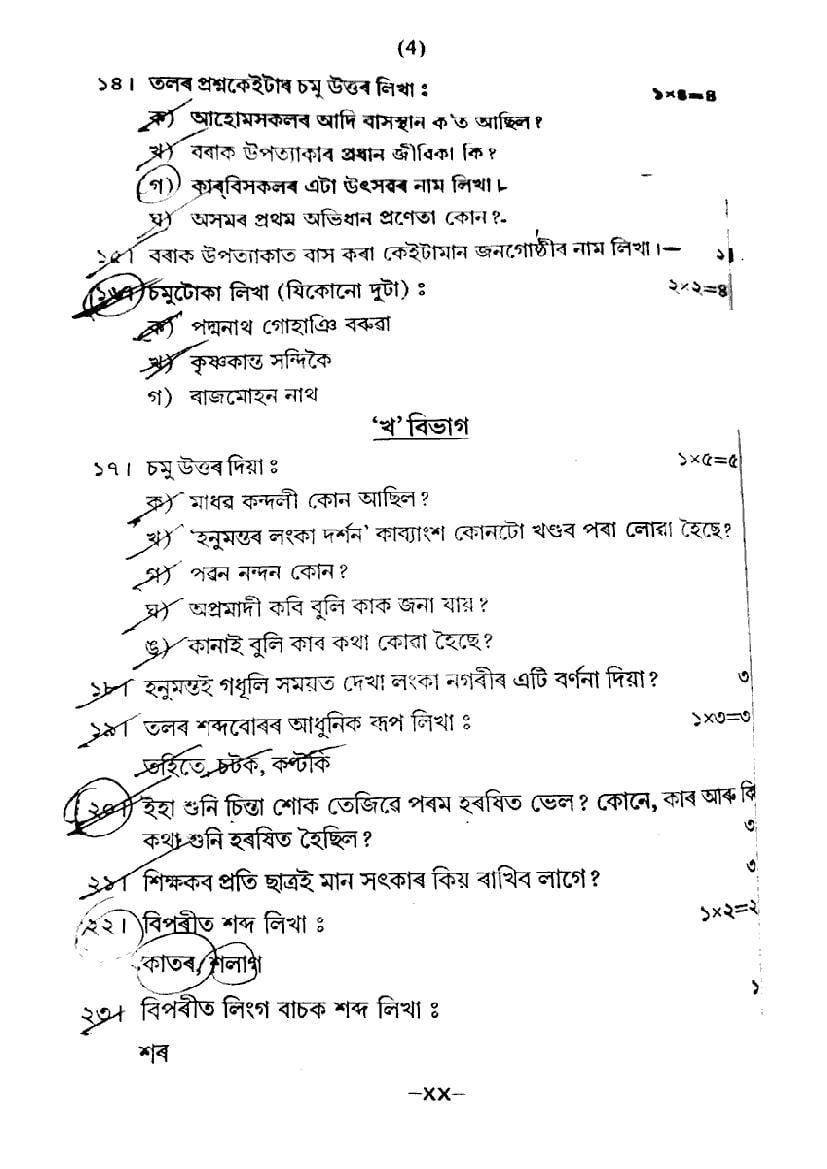 (4)
১৪। তলৰ প্ৰশ্নকেইটাৰ চমু উত্তৰ লিখা ঃ ১×৪=৪
ক) আহোমসকলৰ আদি বাসস্থান ক'ত আছিল?
খ) বৰাক উপত্যাকাৰ প্ৰধান জীৱিকা কি?
গ) কাৰ্বিসকলৰ এটা উৎসৱৰ নাম লিখা।
ঘ) অসমৰ প্ৰথম অভিধান প্ৰণেতা কোন?
১৫। বৰাক উপত্যাকাত বাস কৰা কেইটামান জনগোষ্ঠীৰ নাম লিখা। ১
১৬। চমুটোকা লিখা (যিকোনো দুটা) ঃ ২×২=৪
ক) পদ্মনাথ গোহাঞি বৰুৱা
খ) কৃষ্ণকান্ত সন্দিকৈ
গ) ৰাজমোহন নাথ
'খ' বিভাগ
১৭। চমু উত্তৰ দিয়া ঃ ১×৫=৫
ক) মাধৱ কন্দলী কোন আছিল?
খ) 'হনুমন্তৰ লংকা দৰ্শন' কাব্যাংশ কোনটো খণ্ডৰ পৰা লোৱা হৈছে?
গ) পৱন নন্দন কোন?
ঘ) অপ্ৰমাদী কবি বুলি কাক জনা যায়?
ঙ) কানাই বুলি কাৰ কথা কোৱা হৈছে?
১৮। হনুমন্তই গধূলি সময়ত দেখা লংকা নগৰীৰ এটি বৰ্ণনা দিয়া? ৩
১৯। তলৰ শব্দবোৰৰ আধুনিক ৰূপ লিখা ঃ ১×৩=৩
তহিতে, চটৰ্ক, কণ্টৰ্কি
২০। ইহা শুনি চিন্তা শোক তেজিৱে পৰম হৰষিত ভেল? কোনে, কাৰ আৰু কি
কথা শুনি হৰষিত হৈছিল? ৩
২১। শিক্ষকৰ প্ৰতি ছাত্ৰই মান সৎকাৰ কিয় ৰাখিব লাগে? ৩
২২। বিপৰীত শব্দ লিখা ঃ ১×২=২
কাতৰ, শলাগ
২৩। বিপৰীত লিংগ বাচক শব্দ লিখা ঃ ১
শৰ
–XX–